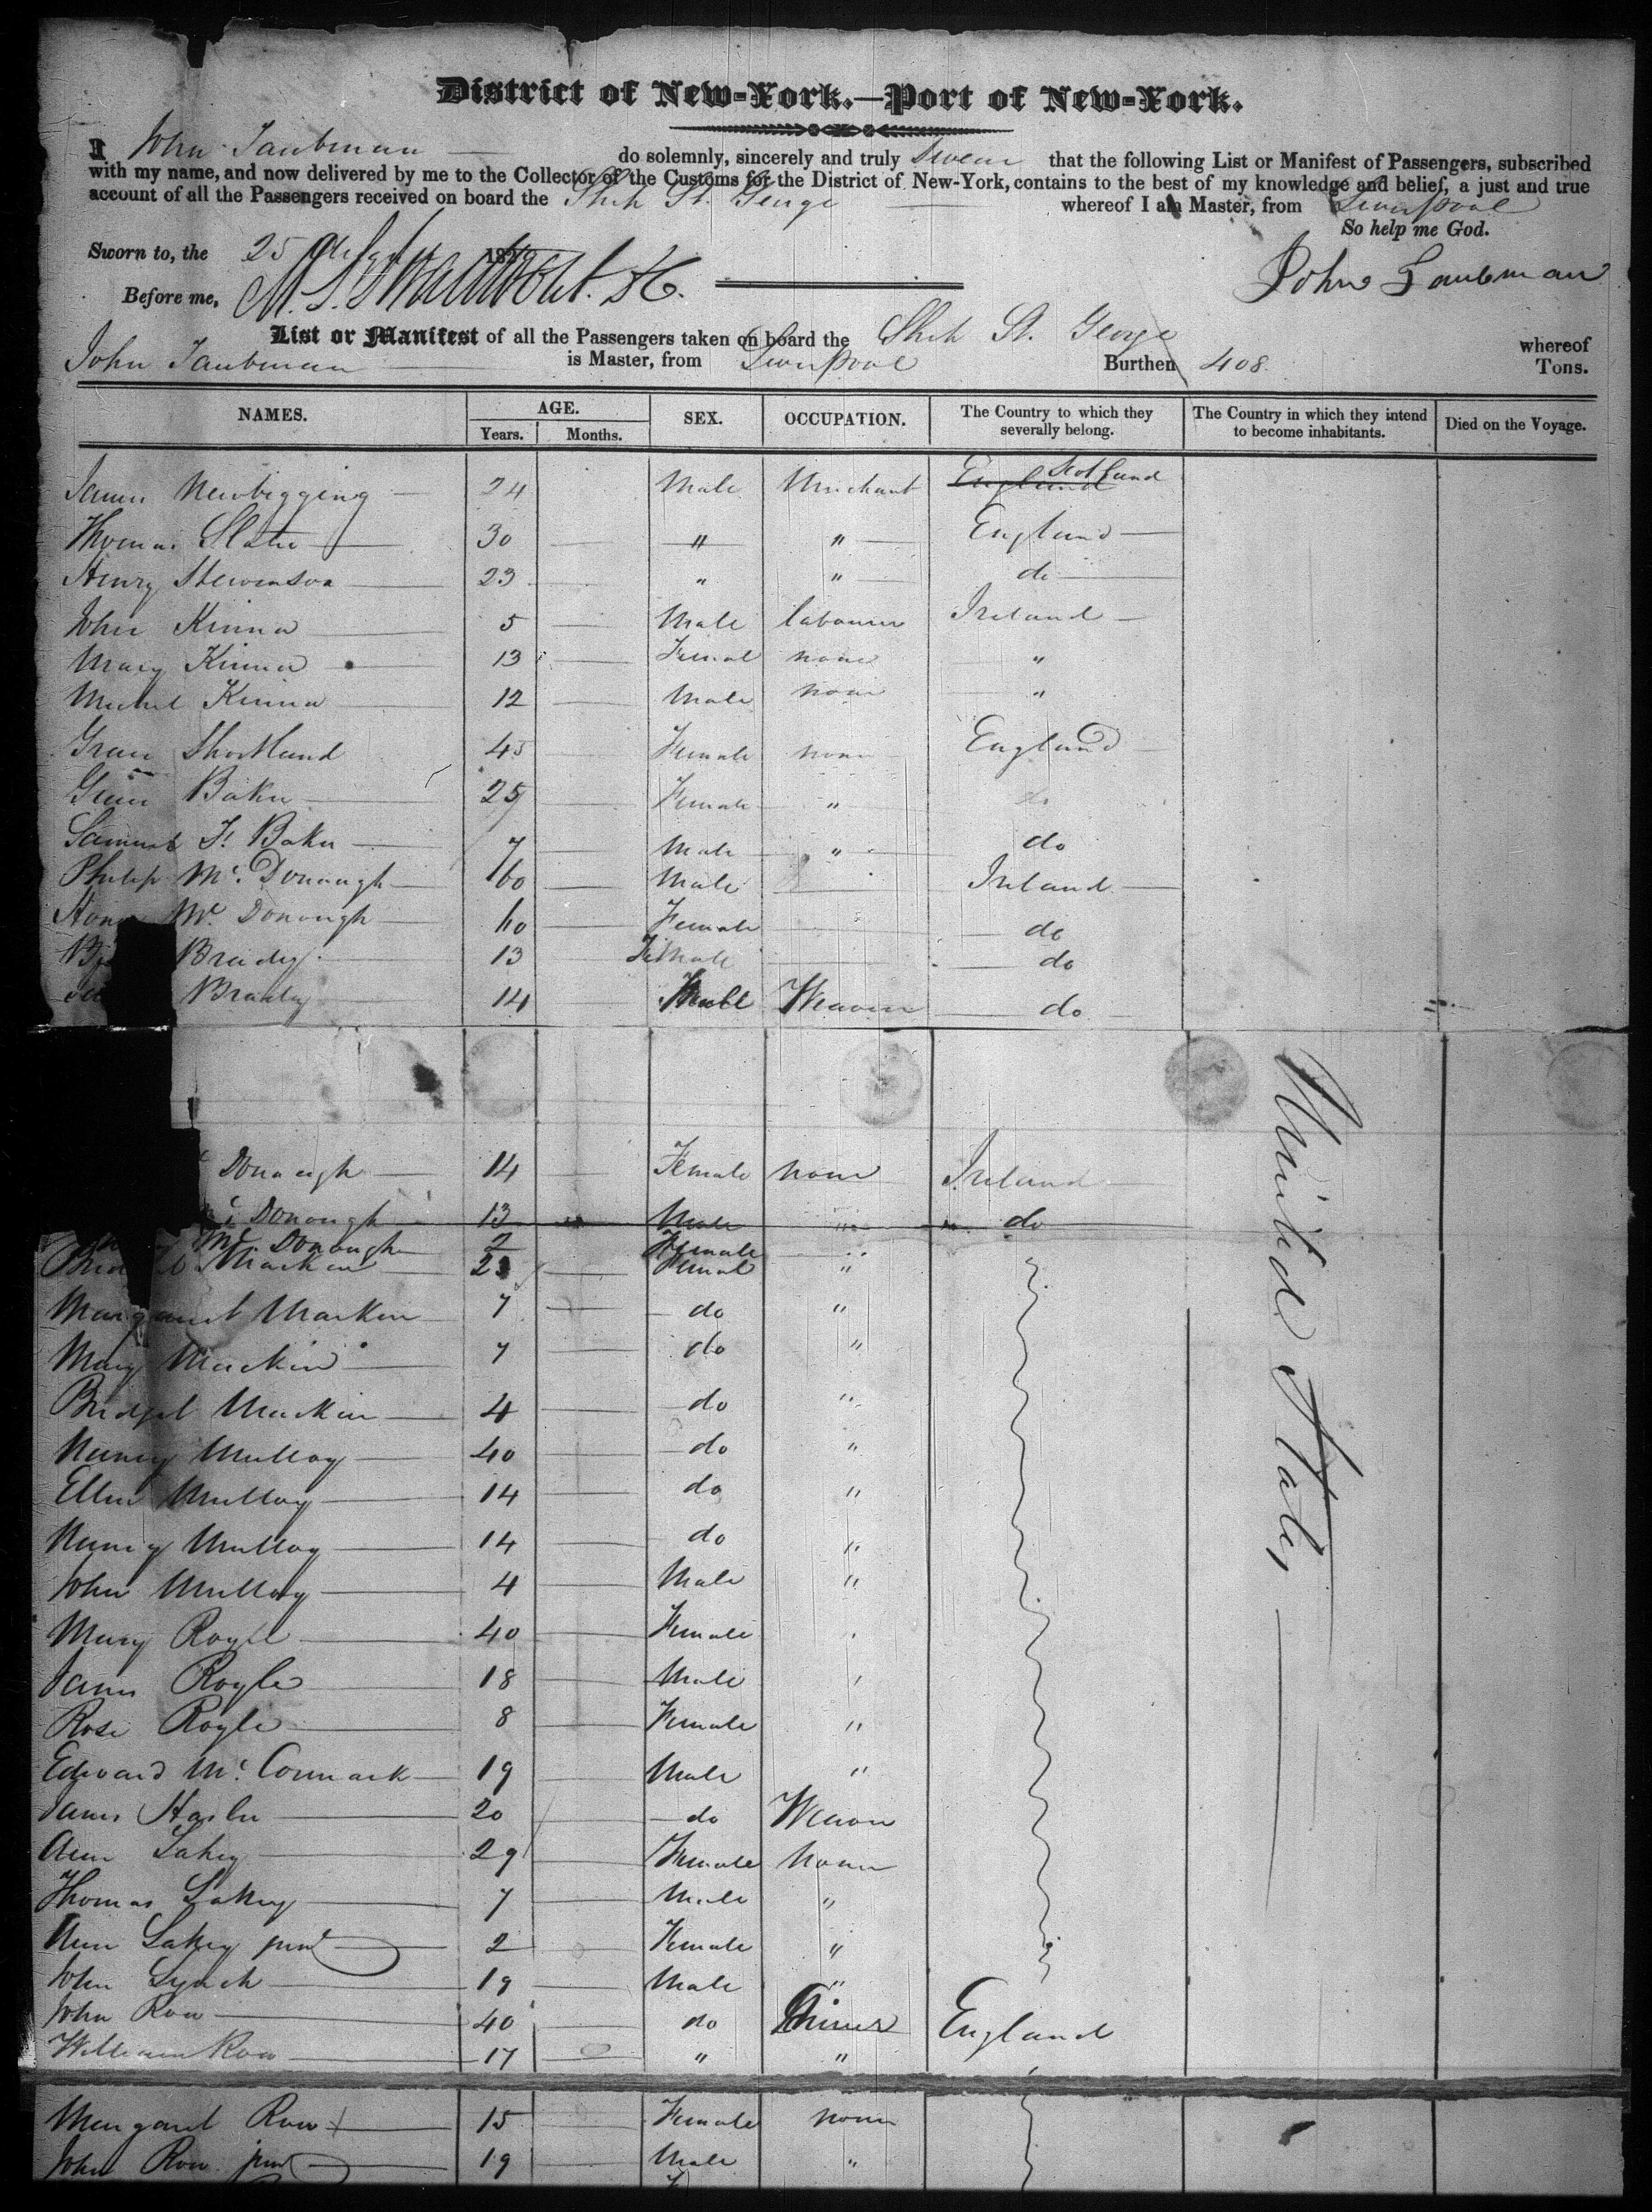 District of New-York.—Port of New-York.
I John Taubman do solemnly, sincerely and truly Swear that the following List or Manifest of Passengers, subscribed
with my name, and now delivered by me to the Collector of the Customs for the District of New-York, contains to the best of my knowledge and belief, a just and true
account of all the Passengers received on board the Ship St. George whereof I am Master, from Liverpool
So help me God.
Sworn to, the 25 18
Before me, John Taubman
List or Manifest of all the Passengers taken on board the Ship St. George whereof
John Taubman is Master, from Liverpool Burthen 408 Tons.
NAMES. AGE. SEX. OCCUPATION. The Country to which they severally belong. The Country in which they intend to become inhabitants. Died on the Voyage.
Years. Months.
James Newbigging 24 Male Merchant England Scotland
Thomas Slater 30 " " England
Henry Stevenson 23 " " do
John Kinna 5 Male labourer Ireland
Mary Kinna 13 Female none "
Michel Kinna 12 Male none "
Shortland 45 Female none England
Baker 25 Female " do
Samuel Baker 7 Male " do
Philip Mc Donough 60 Male Ireland
Mc Donough 60 Female do
Brady 13 Female do
Brady 14 Male Weaver do
United States
Donough 14 Female none Ireland
Donough 13 Male " do
Mc Donough 2 Female "
Bridget Mackin 2 Female "
Margaret Mackin 7 do "
Mary Mackin 7 do "
Bridget Mackin 4 do "
Nancy Mulloy 40 do "
Ellen Mulloy 14 do "
Nancy Mulloy 14 do "
John Mulloy 4 Male "
Mary Royle 40 Female "
James Royle 18 Male "
Rose Royle 8 Female "
Edward Mc Cormack 19 Male "
James 20 do Weaver
Ann Lakey 29 Female None
Thomas Lakey 7 Male "
Ann Lakey junr 2 Female "
John Lynch 19 Male "
John Row 40 do Miner England
William Row 17 " "
Margaret Row 15 Female none
John Row junr 19 Male "